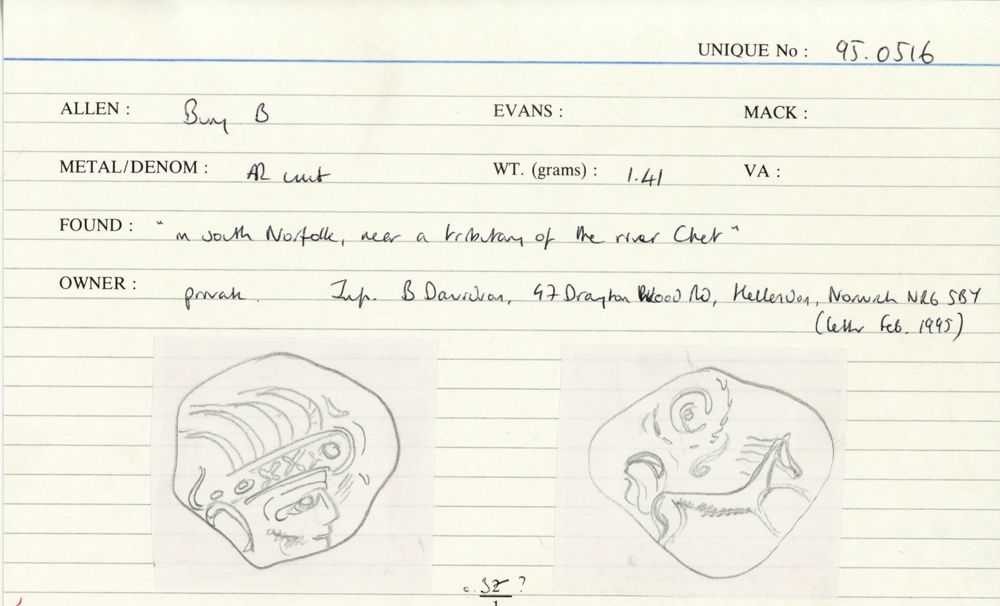 UNIQUE No : 95.0516
ALLEN : Bury B EVANS : MACK :
METAL/DENOM : AR unit WT. (grams) : 1.41 VA :
FOUND : "in south Norfolk, near a tributary of the river Chet"
OWNER : private. Inf. B Davidson, 97 Drayton Wood Rd, Hellesdon, Norwich NR6 5BY
(letter Feb. 1995)
c. ?
1